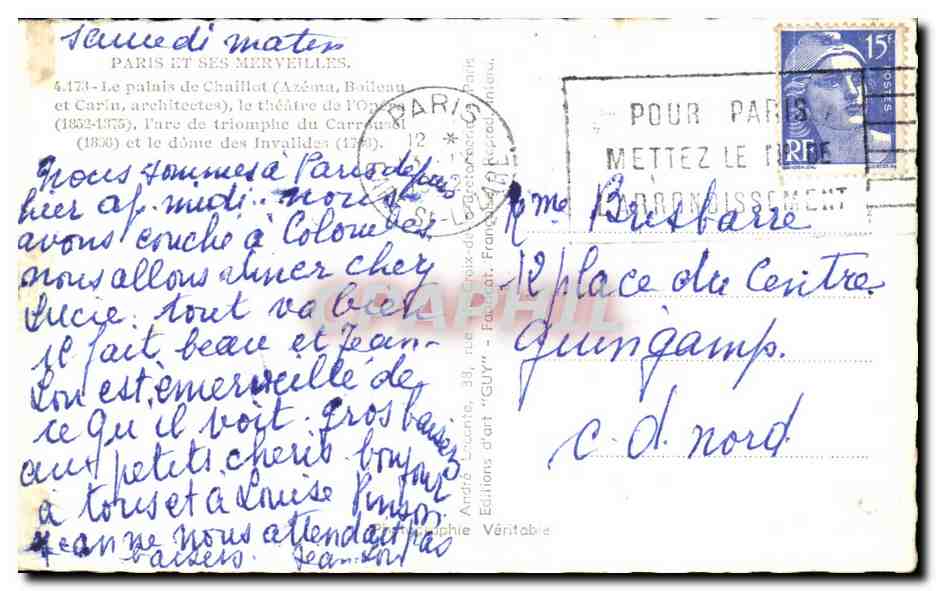 samedi matin
PARIS ET SES MERVEILLES.
4.173 - Le palais de Chaillot (Azéma, Boileau
et Carlu, architectes), le théâtre de l'Opéra
(1852-1875), l'arc de triomphe du Carrousel
(1806) et le dôme des Invalides
nous sommes à Paris depuis
hier ap. midi. nous
avons couché à Colombes
nous allons diner chez
Lucie. tout va bien
il fait beau et Jean-
Lou est émerveillé de
ce qu'il voit. gros baisers
aux petits cheris bonjour
à tous et à Louise Pinson.
Jeanne nous attendait pas
baisers. Jean Lou
André Leconte, 38, rue Croix-de Paris
Editions d'art "GUY" - Fabricat. Française Reprod. interd.
Photographie Véritable
PARIS
12 *
ST-LAZARE
POUR PARIS
METTEZ LE N° DE
L'ARRONDISSEMENT
15F
POSTES
RF
Mme Brisbarre
12 place du Centre
Guingamp.
C. d. nord